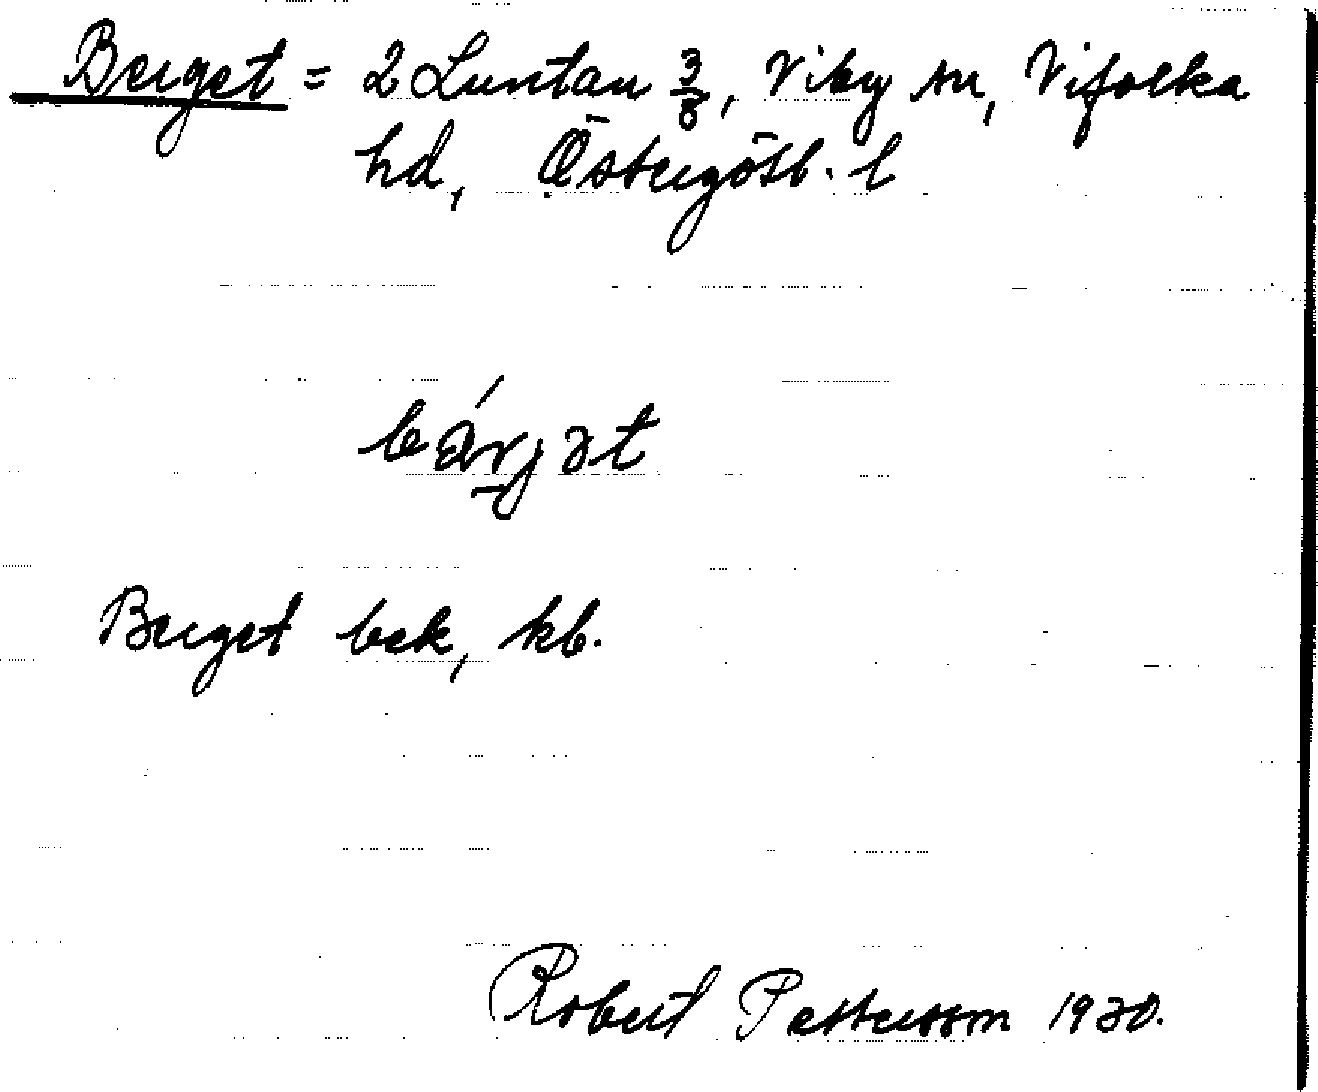 Berget = 2 Luntan 3/8, Viby sn, Vifolka
hd, Östergötl. l
bärjət
Berget bek, kb.
Robert Pettersson 1930.